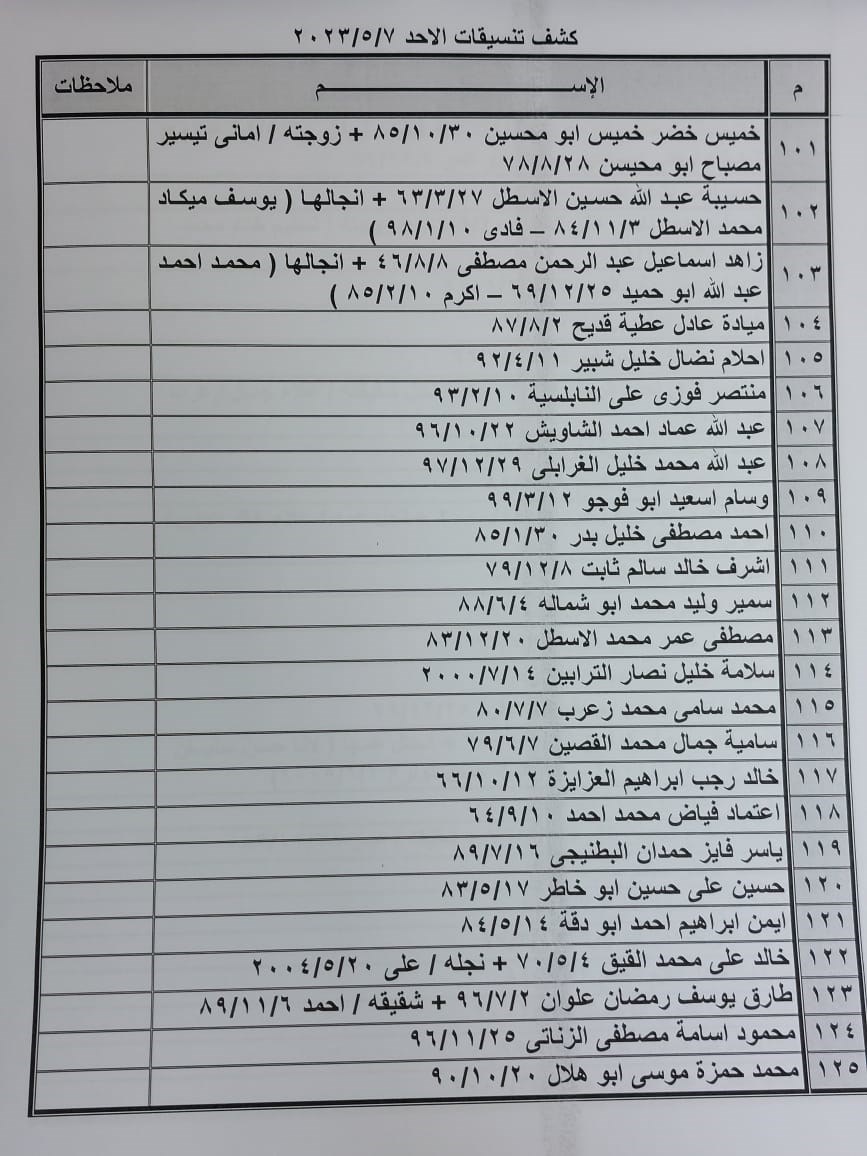 كشف تنسيقات الاحد ٢٠٢٣/٥/٧
م الإســــــــــم ملاحظات
١٠١ خميس خضر خميس ابو محسين ٨٥/١٠/٣٠ + زوجته / امانى تيسير
مصباح ابو محيسن ٧٨/٨/٢٨
١٠٢ حسيبة عبد الله حسين الاسطل ٦٣/٣/٢٧ + انجالها ( يوسف ميكاد
محمد الاسطل ٨٤/١١/٣ – فادى ٩٨/١/١٠ )
١٠٣ زاهد اسماعيل عبد الرحمن مصطفى ٤٦/٨/٨ + انجالها ( محمد احمد
عبد الله ابو حميد ٦٩/١٢/٢٥ – اكرم ٨٥/٢/١٠ )
١٠٤ ميادة عادل عطية قديح ٨٧/٨/٢
١٠٥ احلام نضال خليل شبير ٩٢/٤/١١
١٠٦ منتصر فوزى على النابلسية ٩٣/٢/١٠
١٠٧ عبد الله عماد احمد الشاويش ٩٦/١٠/٢٢
١٠٨ عبد الله محمد خليل الغرابلى ٩٧/١٢/٢٩
١٠٩ وسام اسعيد ابو فوجو ٩٩/٣/١٢
١١٠ احمد مصطفى خليل بدر ٨٥/١/٣٠
١١١ اشرف خالد سالم ثابت ٧٩/١٢/٨
١١٢ سمير وليد محمد ابو شماله ٨٨/٦/٤
١١٣ مصطفى عمر محمد الاسطل ٨٣/١٢/٢٠
١١٤ سلامة خليل نصار الترابين ٢٠٠٠/٧/١٤
١١٥ محمد سامى محمد زعرب ٨٠/٧/٧
١١٦ سامية جمال محمد القصين ٧٩/٦/٧
١١٧ خالد رجب ابراهيم العزايزة ٦٦/١٠/١٢
١١٨ اعتماد فياض محمد احمد ٦٤/٩/١٠
١١٩ ياسر فايز حمدان البطنيجى ٨٩/٧/١٦
١٢٠ حسين على حسين ابو خاطر ٨٣/٥/١٧
١٢١ ايمن ابراهيم احمد ابو دقة ٨٤/٥/١٤
١٢٢ خالد على محمد القيق ٧٠/٥/٤ + نجله / على ٢٠٠٤/٥/٢٠
١٢٣ طارق يوسف رمضان علوان ٩٦/٧/٢ + شقيقه / احمد ٨٩/١١/٦
١٢٤ محمود اسامة مصطفى الزناتى ٩٦/١١/٢٥
١٢٥ محمد حمزة موسى ابو هلال ٩٠/١٠/٢٠